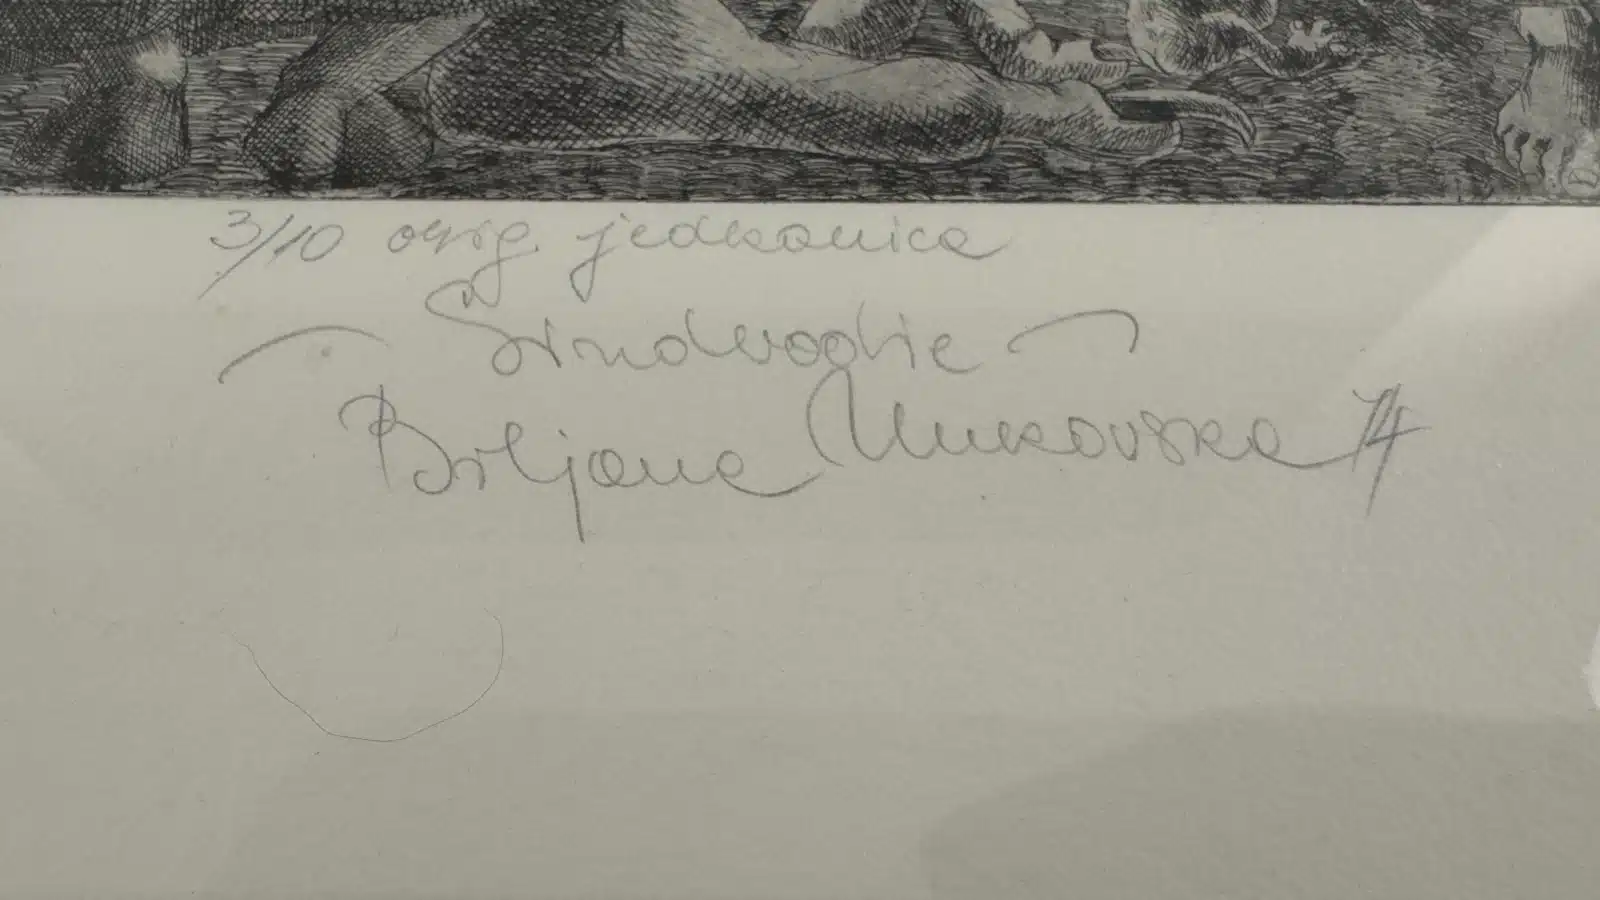 3/10 orig. jedkanica
Biljana Unkovska 74